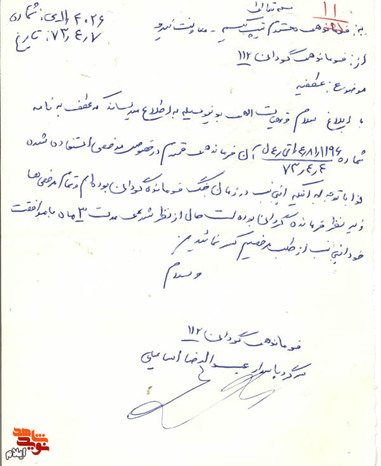 بسمه تعالی
۱۱
به: فرماندهی محترم تیپ - معاونت نیرو
شماره: ۲۰۲۶
تاریخ: ۷۳٫۴٫۷
از: فرماندهی گردان ۱۱۲
موضوع: عطفیه
با ابلاغ سلام و تحیات الهی بدینوسیله به اطلاع میرساند که عطف به نامه
شماره آن فرماندهی محترم در خصوص مرخصی استحقاقی شده
۷۳٫۴٫۴
لذا با توجه به اینکه اینجانب در زمان جنگ فرمانده گردان بوده‌ام و تمام مرخصی‌ها
زیر نظر فرمانده گردان بوده است حال از نظر شرعی مدت ۳ ماه با موافقت
خود اینجانب از طلب مرخصیم کسر نمائید.
والسلام
فرماندهی گردان ۱۱۲
سرگرد پاسدار عبدالرضا
نوید شاهد
ایلام